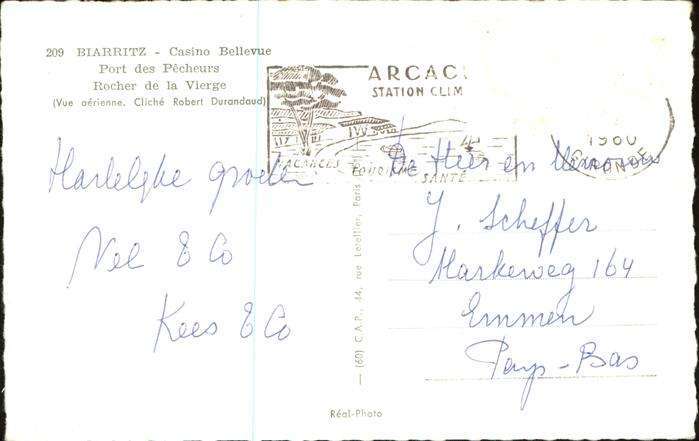 209 BIARRITZ - Casino Bellevue
Port des Pêcheurs
Rocher de la Vierge
(Vue aérienne. Cliché Robert Durandaud)
ARCAC
STATION CLIM
VACANCES TOURISME SANTÉ
1960
GIRONDE
Hartelijke groeten
Nel & Co
Kees & Co
De Heer en Mevrouw
J. Scheffer
Markeweg 164
Emmen
Pays-Bas
(60) C.A.P., 44, rue Letellier, Paris
Réal-Photo